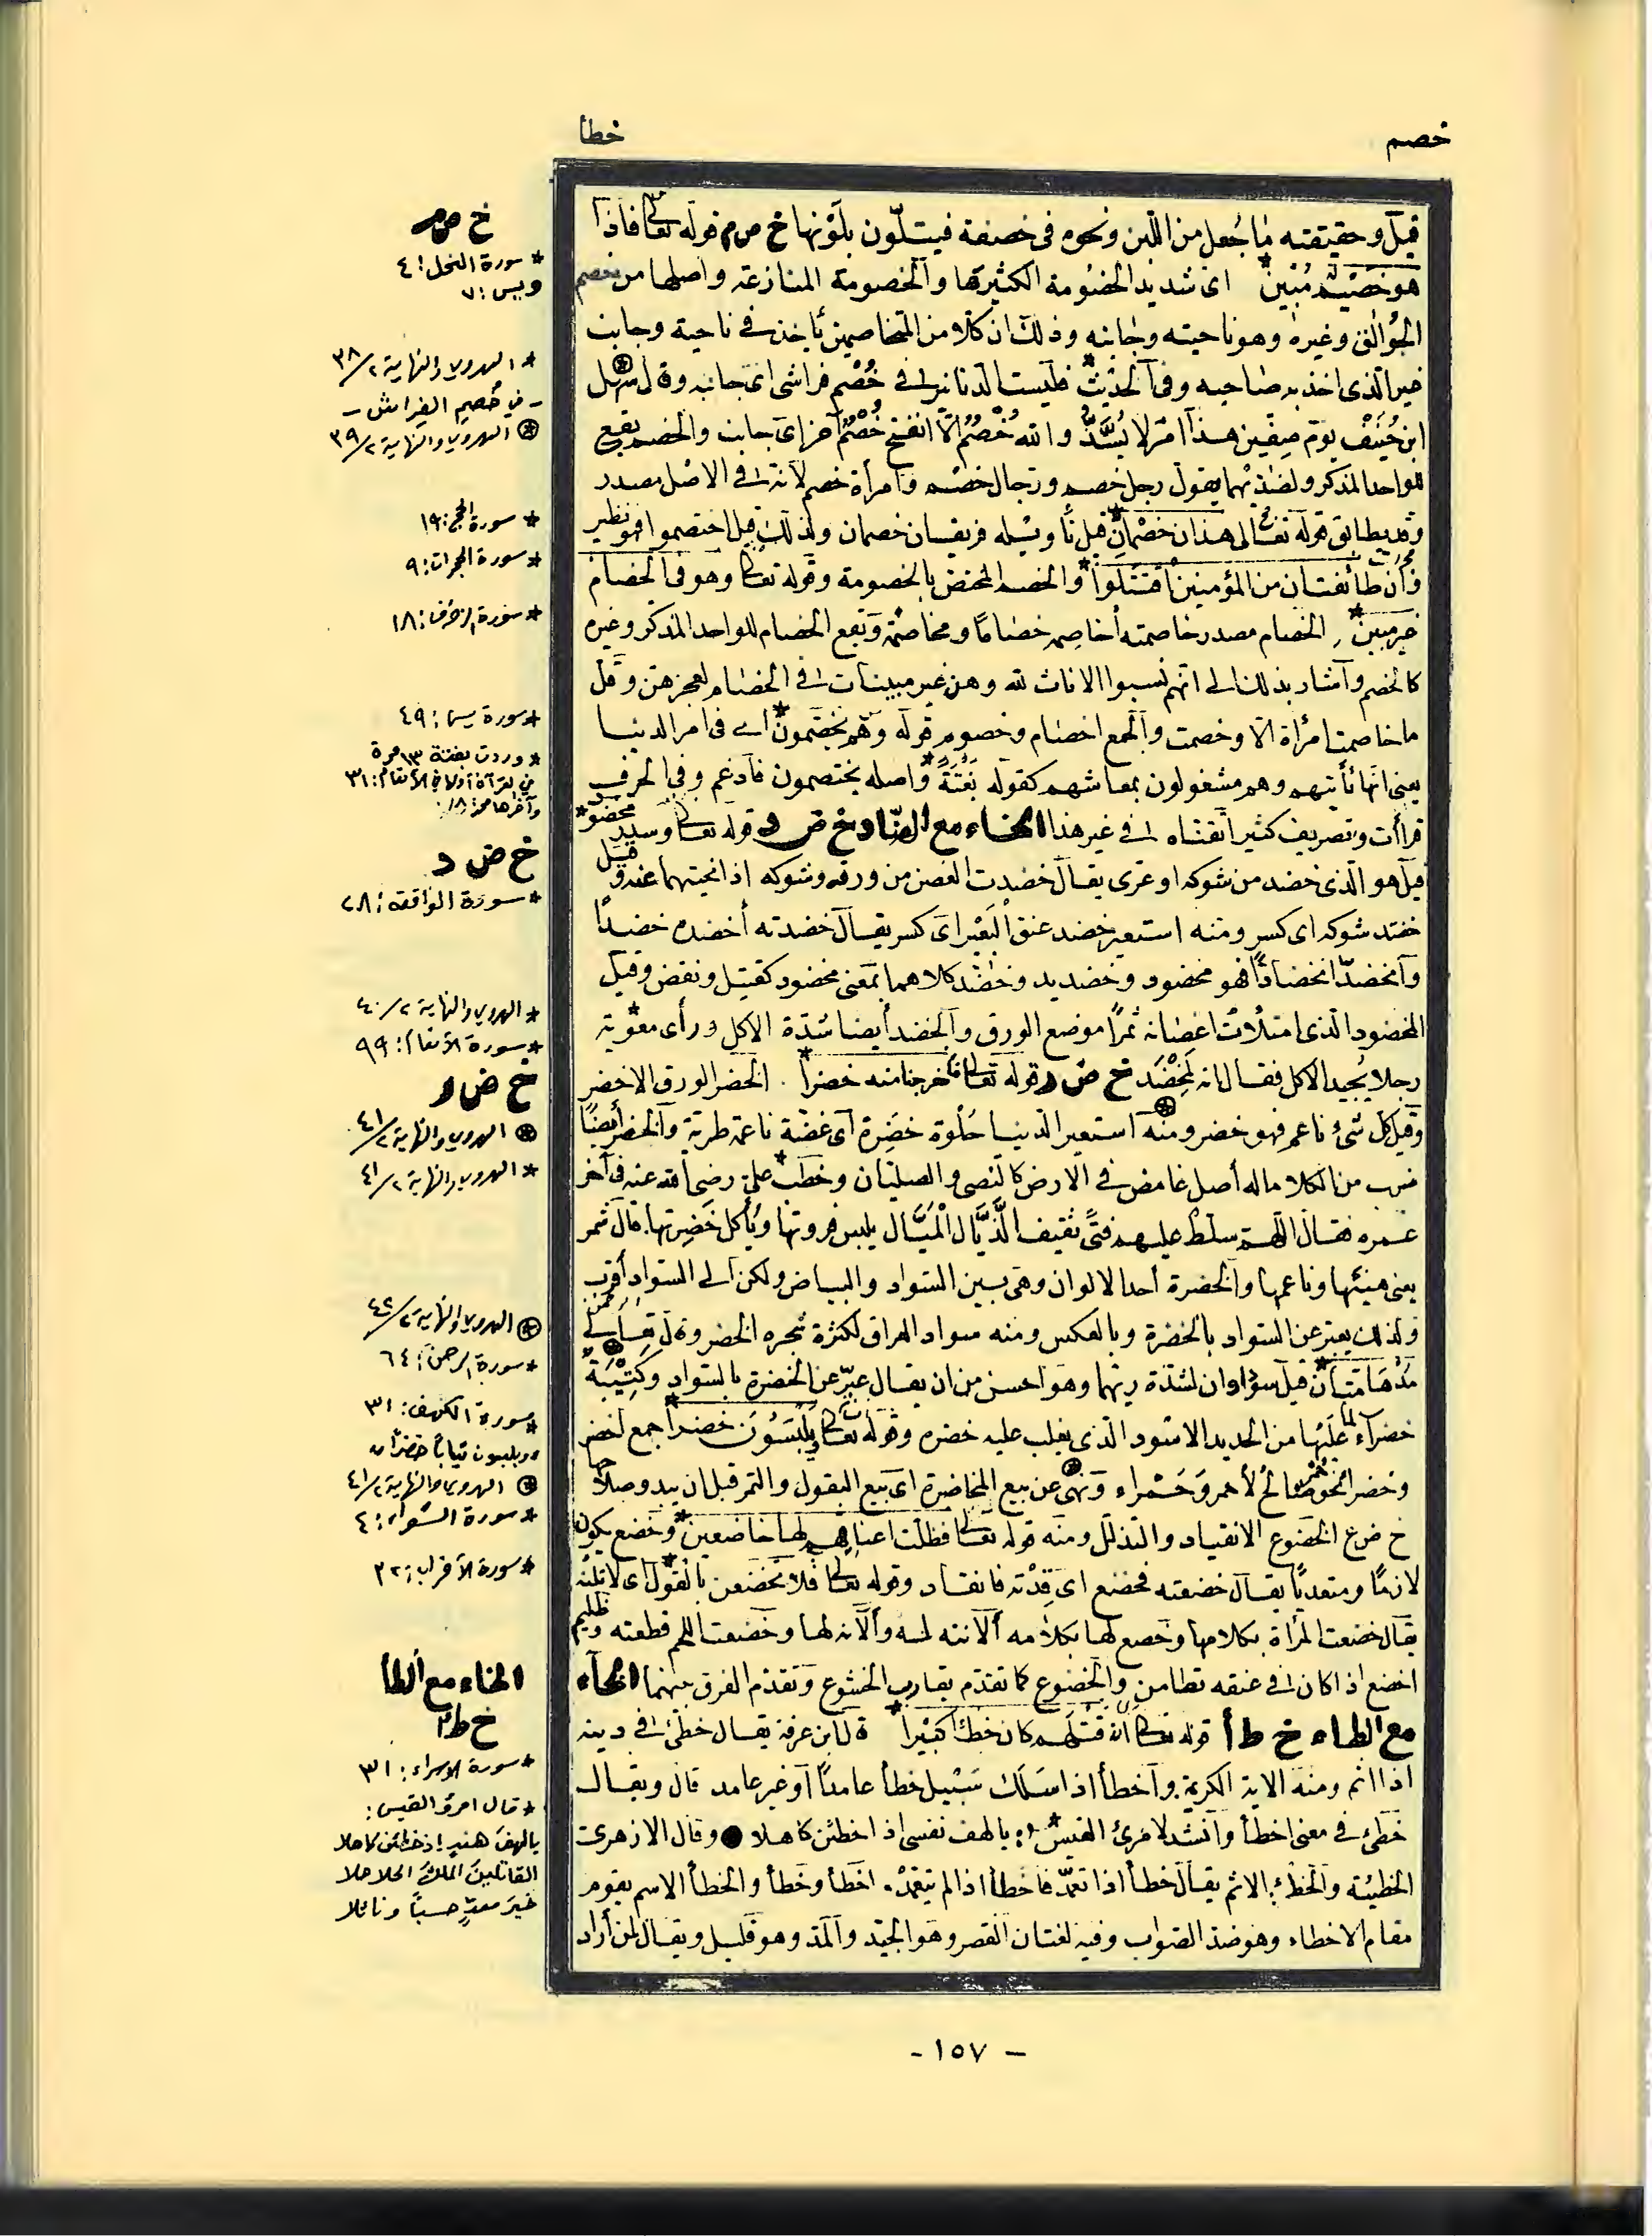 خصم
خطأ
قيل وحقيقته ما جُعل من اللبن ونحوه في خصفة فيتلون بلونها خ ص م قوله تعالى فاذا
هو خصيم مبين* اى شديد الخصومة الكثيرها والخصومة المنازعة واصلها من خصم
الجوالق وغيره وهو ناحيته وجانبه وذلك ان كلا من المتخاصمين يأخذ في ناحية وجانب
غير الذى اخذ به صاحبه وفى الحديث* فليست الدنانير في خُصْم فراشى اى جانبه وقال سهل
ابن حنيف يوم صفين هذا امر لا يُسَدُّ والله خُصْمٌ الا انفتح خُصْمٌ آخر اى جانب والخصم يقع
للواحد المذكر ولضديهما يقول رجل خصم ورجال خصم وامرأة خصم لأنه في الاصل مصدر
وقد يطابق قوله تعالى هذان خصمان* قيل ويسله فريقان خصمان ولذلك قيل اختصموا فهو نظير
وان طائفتان من المؤمنين اقتتلوا* والخصم المختص بالخصومة وقوله تعالى وهو في الخصام
غير مبين* الخصام مصدر خاصمته أخاصمه خصاما ومخاصمة ويقع الخصام للواحد المذكر وغيره
كالخصم واشار بذلك الى انهم نسبوا الاناث لله وهن غير مبينات في الخصام لعجزهن وقل
ما خاصمت امرأة الا وخصمت والجمع اخصام وخصوم قوله وهم يخصمون* اى في امر الدنيا
يعنى انها تأتيهم وهم مشغولون بمعاشهم كقوله بغتة* واصله يختصمون فأدغم وفي الحرف
قراآت وتصريف كثير اتقناه في غير هذا الخاء مع الضاد خ ض د قوله تعالى وسدر مخضود*
قيل هو الذى خضد من شوكه اى عرى يقال خضدت الغصن من ورقه وشوكه اذا نحيتهما عنه وقيل
خضد شوكه اى كسر ومنه استعير خضد عنق البعير اى كسر يقال خضدته أخضده خضدا
وانخضد انخضادا فهو مخضود وخضيد وخضد كلاهما بمعنى مخضود كقتيل ونقض وقيل
المخضود الذى امتلأت اغصانه ثمرا موضع الورق والخضد أيضا شدة الاكل ورأى معوية
رجلا يجيد الاكل فقال انه لمخضد خ ض ر قوله تعالى فأخرجنا منه خضرا* . الخضر الورق الاخضر
وقيل كل شئ ناعم فهو خضر ومنه استعير الدنيا حلوة خضرة اى غضة ناعمة طرية والخضر أيضا
ضرب من الكلا ماله أصل غامض في الارض كالنصى والصليان وخطب* على رضى الله عنه في آخر
عمره فقال اللهم سلط عليهم فتى ثقيف الذيال الميال يلبس فروتها ويأكل خضرتها. قال شمر
يعنى هنيئها وناعمها والخضرة أحد الالوان وهى بين السواد والبياض ولكن الى السواد أقرب
ولذلك يعبر عن السواد بالخضرة وبالعكس ومنه سواد العراق لكثرة شجره الخضر وقال تعالى
مدهامتان* قيل سوداوان لشدة ريهما وهو احسن من ان يقال عبر عن الخضرة بالسواد وكتيبة
خضراء لما عليها من الحديد الاسود الذى يغلب عليه خضره وقوله تعالى ويلبسون خضرا* جمع أخضر
وخضر نحو حمر صالح لأحمر وحمراء ونهى عن بيع المخاضرة اى بيع البقول والتمر قبل ان يبدو صلاحها
خ ض ع الخضوع الانقياد والتذلل ومنه قوله تعالى فظلت اعناقهم لها خاضعين* وخضع يكون
لازما ومتعديا يقال خضعته فخضع اى قدته فانقاد وقوله تعالى فلا تخضعن بالقول* اى لا تلنه
يقال خضعت المرأة بكلامها وخضع لها بكلامه ألانته له وألانه لها وخضعت اللحم قطعته وظليم
اخضع اذا كان في عنقه تطامن والخضوع كما تقدم يقارب الخشوع وتقدم الفرق بينهما الخاء
مع الطاء خ ط أ قوله تعالى ان قتلهم كان خطأ كبيرا* قال ابن عرفة يقال خطئ في دينه
اذا اثم ومنه الاية الكريمة وأخطأ اذا سلك سبيل خطأ عامدا أو غير عامد قال ويقال
خطئ في معنى اخطأ وأنشد لامرئ القيس* : يا لهف نفسى اذ اخطئن كاهلا ● وقال الازهرى
الخطيئة والخطء الاثم يقال خطأ اذا تعمد فاخطأ اذا لم يتعمد . اخطأ وخطأ والخطأ الاسم يقوم
مقام الاخطاء وهو ضد الصواب وفيه لغتان القصر وهو الجيد والمد وهو قليل ويقال لمن أراد
خ ص م
* سورة النحل: ٤
ويس: ٧
* الهروي والنهاية ٢/٣٨
- في خُصم الفراش -
⊛ الهروي والنهاية ٢/٣٩
* سورة الحج: ١٩
* سورة الحجرات: ٩
* سورة الزخرف: ١٨
* سورة يس: ٤٩
* وردت بغتة ١٣ مرة
في القرآن أولاها في الأنعام: ٣١
وآخرها محمد: ١٨
خ ض د
* سورة الواقعة: ٢٨
* الهروي والنهاية ٢/٤٠
* سورة الأنعام: ٩٩
خ ض ر
⊛ الهروي والنهاية ٢/٤١
* الهروي والنهاية ٢/٤١
⊛ الهروي والنهاية ٢/٤٢
* سورة الرحمن: ٦٤
* سورة الكهف: ٣١
"ويلبسون ثياباً خضراً"
⊛ الهروي والنهاية ٢/٤١
* سورة الشعراء: ٤
* سورة الأحزاب: ٣٢
الخاء مع الطأ
خ ط أ
* سورة الإسراء: ٣١
* قال امرؤ القيس:
يا لهفَ هندٍ إذ خطئن كاهلا
القاتلينَ الملكَ الحلاحلا
خيرَ معدٍّ حسباً ونائلا
- ١٥٧ -